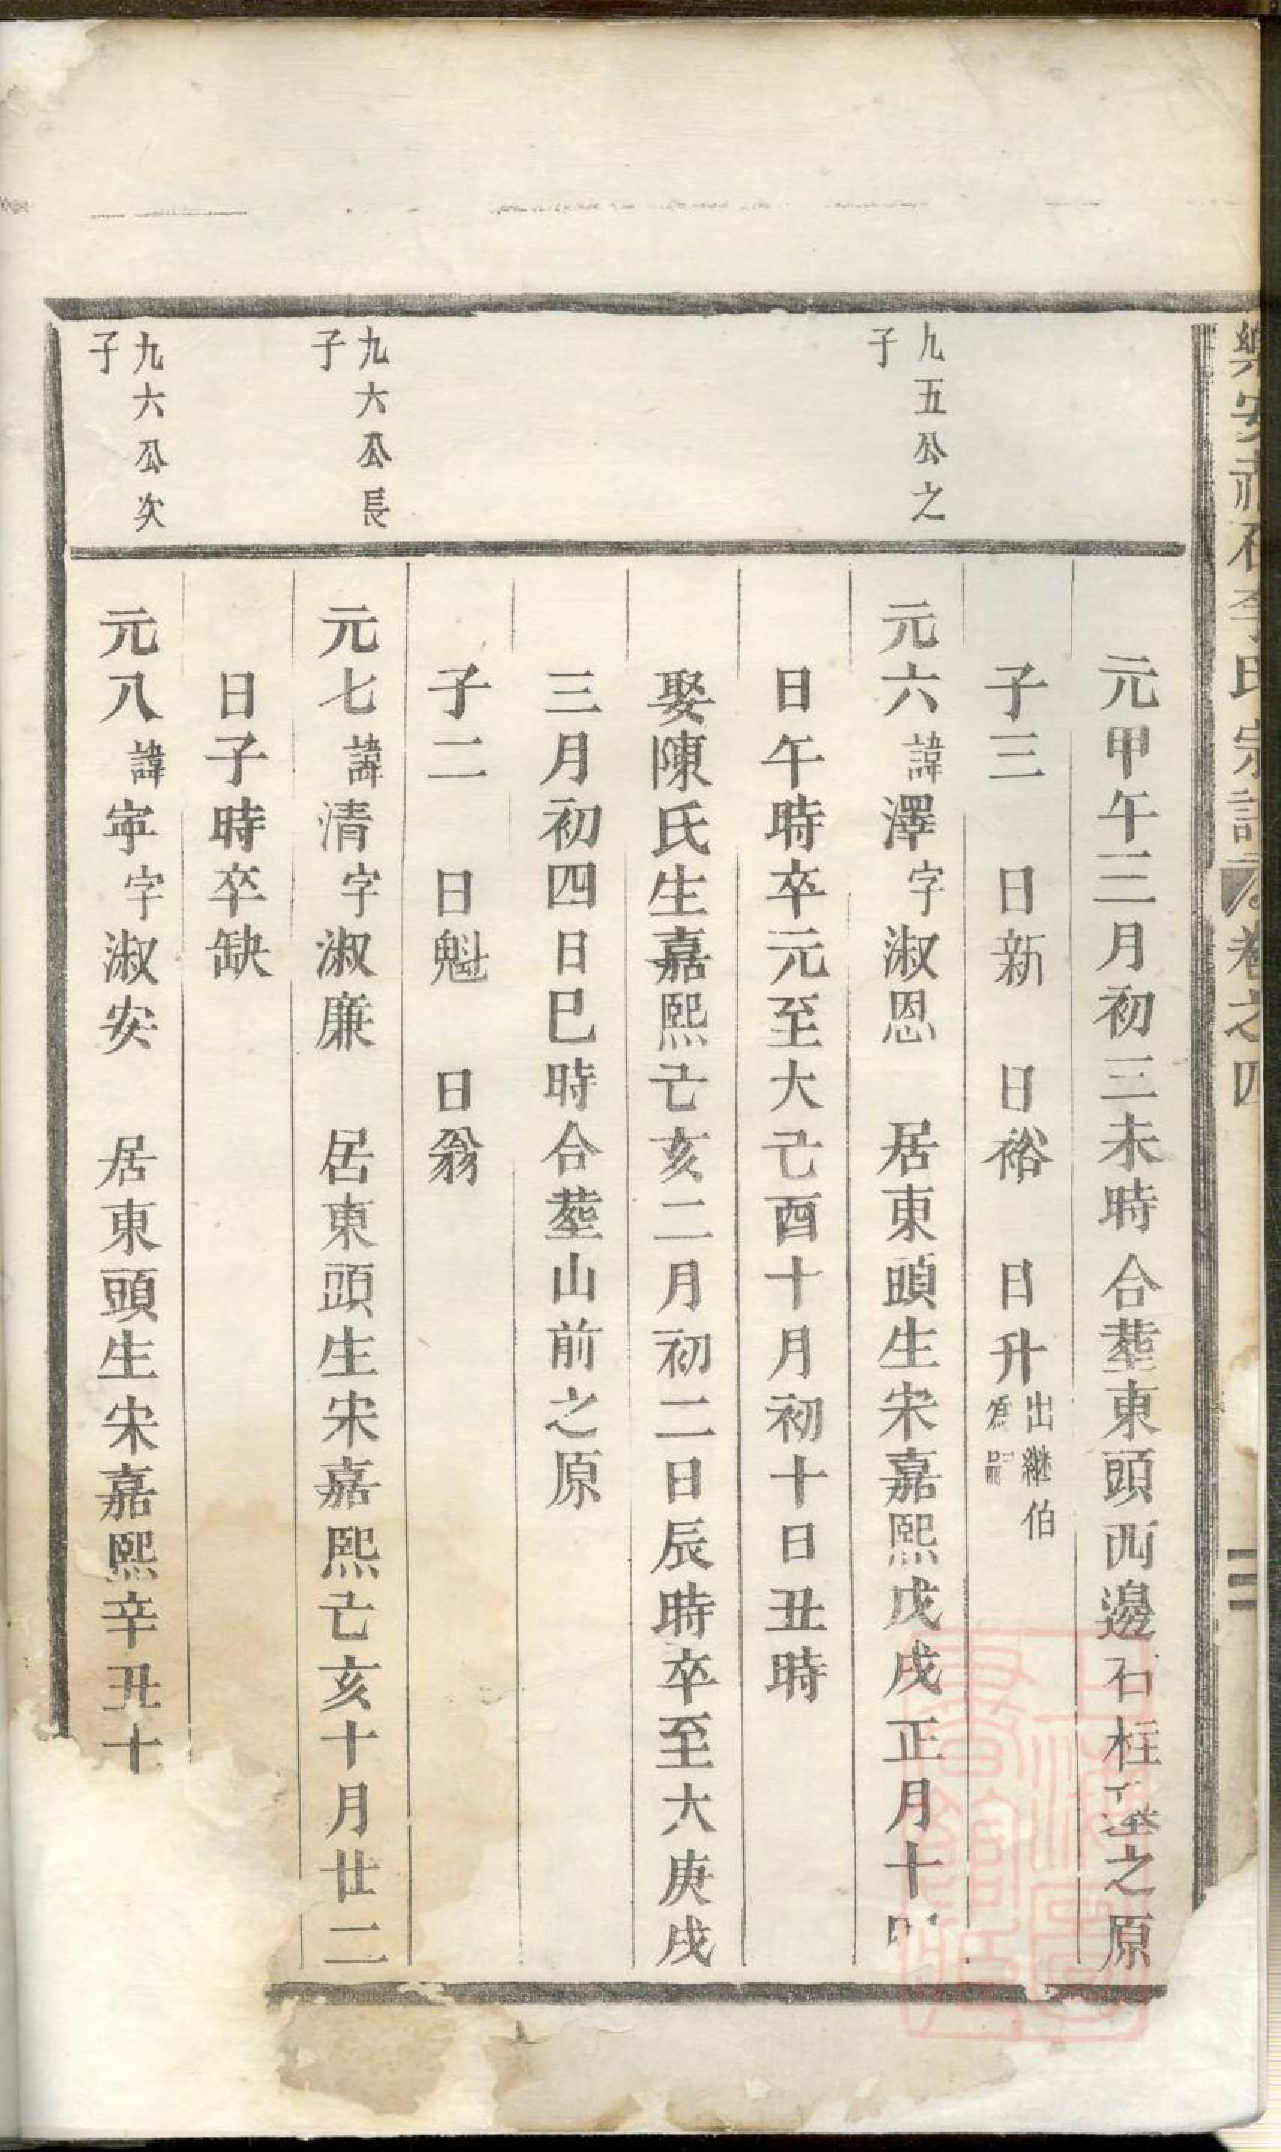 樂安赤石李氏宗譜 卷之四 二
元甲午三月初三未時合塟東頭西邊石柱之原
子三 日新 日裕 日升 出繼伯
九五公之子
元六諱澤字淑恩 居東頭生宋嘉熙戊戌正月十四
日午時卒元至大己酉十月初十日丑時
娶陳氏生嘉熙己亥二月初二日辰時卒至大庚戌
三月初四日巳時合塟山前之原
子二 日魁 日翁
九六公長子
元七諱清字淑廉 居東頭生宋嘉熙己亥十月廿二
日子時卒缺
九六公次子
元八諱寕字淑安 居東頭生宋嘉熙辛丑十